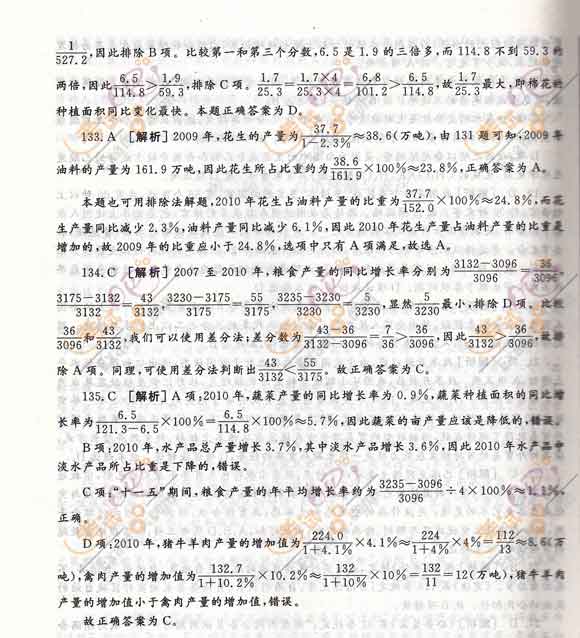 1/527.2,因此排除 B 项。比较第一和第三个分数,6.5 是 1.9 的三倍多,而 114.8 不到 59.3 的
两倍,因此 6.5/114.8>1.9/59.3,排除 C 项。1.7/25.3=1.7×4/25.3×4=6.8/101.2>6.5/114.8,故 1.7/25.3 最大,即棉花的
种植面积同比变化最快。本题正确答案为 D。
133. A [解析] 2009 年,花生的产量为 37.7/1-2.3%≈38.6(万吨),由 131 题可知,2009 年
油料的产量为 161.9 万吨,因此花生所占比重约为 38.6/161.9×100%≈23.8%,正确答案为 A。
本题也可用排除法解题,2010 年花生占油料产量的比重为 37.7/152.0×100%≈24.8%,而花
生产量同比减少 2.3%,油料产量同比减少 6.1%,因此 2010 年花生产量占油料产量的比重是
增加的,故 2009 年的比重应小于 24.8%,选项中只有 A 项满足,故选 A。
134. C [解析] 2007 至 2010 年,粮食产量的同比增长率分别为 3132-3096/3096=36/3096,
3175-3132/3132=43/3132,3230-3175/3175=55/3175,3235-3230/3230=5/3230,显然 5/3230 最小,排除 D 项。比较
36/3096 和 43/3132,我们可以使用差分法:差分数为 43-36/3132-3096=7/36>36/3096,因此 43/3132>36/3096,故排
除 A 项。同理,可使用差分法判断出 43/3132<55/3175。故正确答案为 C。
135. C [解析] A 项:2010 年,蔬菜产量的同比增长率为 0.9%,蔬菜种植面积的同比增
长率为 6.5/121.3-6.5×100%=6.5/114.8×100%≈5.7%,因此蔬菜的亩产量应该是降低的,错误。
B 项:2010 年,水产品总产量增长 3.7%,其中淡水产品增长 3.6%,因此 2010 年水产品中
淡水产品所占比重是下降的,错误。
C 项:“十一五”期间,粮食产量的年平均增长率约为 3235-3096/3096÷4×100%≈1.1%,
正确。
D 项:2010 年,猪牛羊肉产量的增加值为 224.0/1+4.1%×4.1%≈224/1+4%×4%=112/13≈8.6(万
吨),禽肉产量的增加值为 132.7/1+10.2%×10.2%≈132/1+10%×10%=132/11=12(万吨),猪牛羊肉
产量的增加值小于禽肉产量的增加值,错误。
故正确答案为 C。